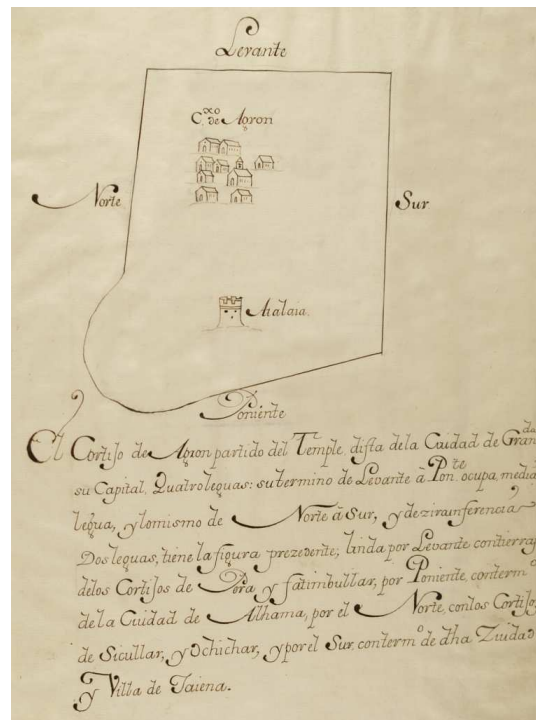 Levante
C.xo de Agron
Norte
Sur.
Atalaia.
Poniente
El Cortijo de Agron partido del Temple, dista dela Ciudad de Granda
su Capital, Quatro leguas: su termino de Levante â Ponte. ocupa, media
legua, y lo mismo de Norte â Sur, y de zircunferencia
Dos leguas, tiene la figura prezedente; linda por Levante con tierras
delos Cortijos de Pera y fatimbullar, por Poniente, con termo.
de la Ciudad de Alhama, por el Norte, con los Cortijos,
de Sicullar, y Ochichar, y por el Sur, con termo. de dha Ziudad
y Villa de Jaiena.